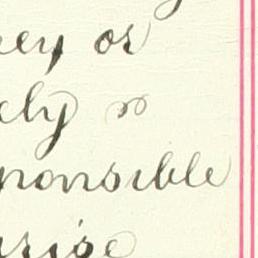 ey or
ely so
ponsible
arise